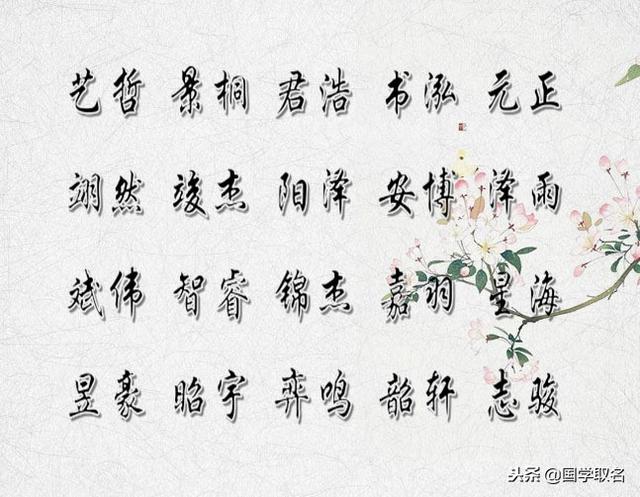 艺哲 景桐 君浩 书泓 元正
翊然 竣杰 阳泽 安博 泽雨
斌伟 智睿 锦杰 嘉羽 星海
昱豪 昭宇 弈鸣 韶轩 志骏
头条 @国学取名